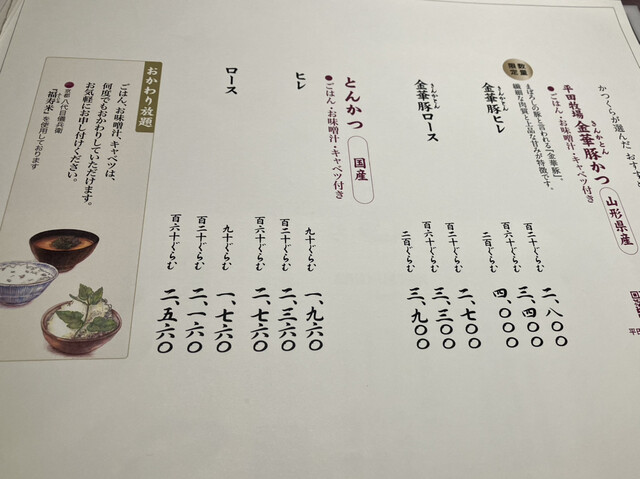 かつくらが選んだおす
平田牧場 金華豚かつ 山形県産
きんかとん
●ごはん・お味噌汁・キャベツ付き
数量限定
まぼろしの豚と言われる「金華豚」、
繊細な肉質と上品な甘みが特徴です。
金華豚ヒレ
きんかとん
百二十ぐらむ 二、八〇〇
百六十ぐらむ 三、四〇〇
二百ぐらむ 四、〇〇〇
金華豚ロース
きんかとん
百二十ぐらむ 二、七〇〇
百六十ぐらむ 三、三〇〇
二百ぐらむ 三、九〇〇
とんかつ 国産
●ごはん・お味噌汁・キャベツ付き
ヒレ
九十ぐらむ 一、九六〇
百二十ぐらむ 二、三六〇
百六十ぐらむ 二、七六〇
ロース
九十ぐらむ 一、七六〇
百二十ぐらむ 二、一六〇
百六十ぐらむ 二、五六〇
おかわり放題
ごはん、お味噌汁、キャベツは、
何度でもおかわりしていただけます。
お気軽にお申し付けください。
京都 八代目儀兵衛
「福寿米」を使用しております
平田